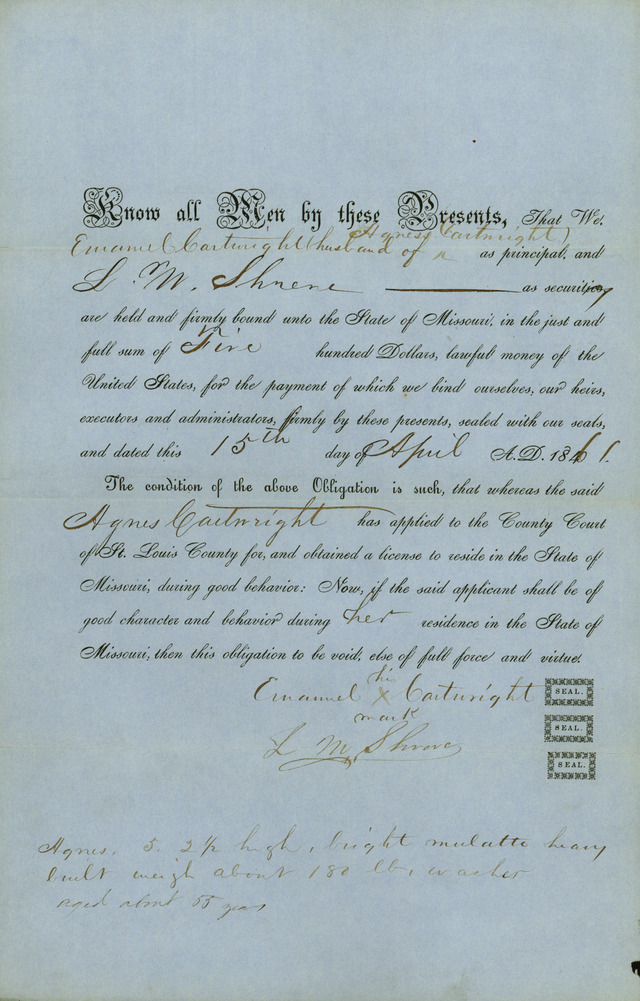 Know all Men by these Presents, That We,
Emanuel Cartwright (husband of Agness Cartwright)
as principal, and
L. M. Shreve as security
are held and firmly bound unto the State of Missouri, in the just and
full sum of Five hundred Dollars, lawful money of the
United States, for the payment of which we bind ourselves, our heirs,
executors and administrators, firmly by these presents, sealed with our seals,
and dated this 15th day of April A.D. 1861.
The condition of the above Obligation is such, that whereas the said
Agnes Cartwright has applied to the County Court
of St. Louis County for, and obtained a license to reside in the State of
Missouri, during good behavior: Now, if the said applicant shall be of
good character and behavior during her residence in the State of
Missouri, then this obligation to be void, else of full force and virtue.
his
Emanuel X Cartwright SEAL.
mark
SEAL.
L M Shreve
SEAL.
Agnes. 5. 2 1/2 high, bright mulatto heavy
built weigh about 180 lb, washer
aged about 55 years